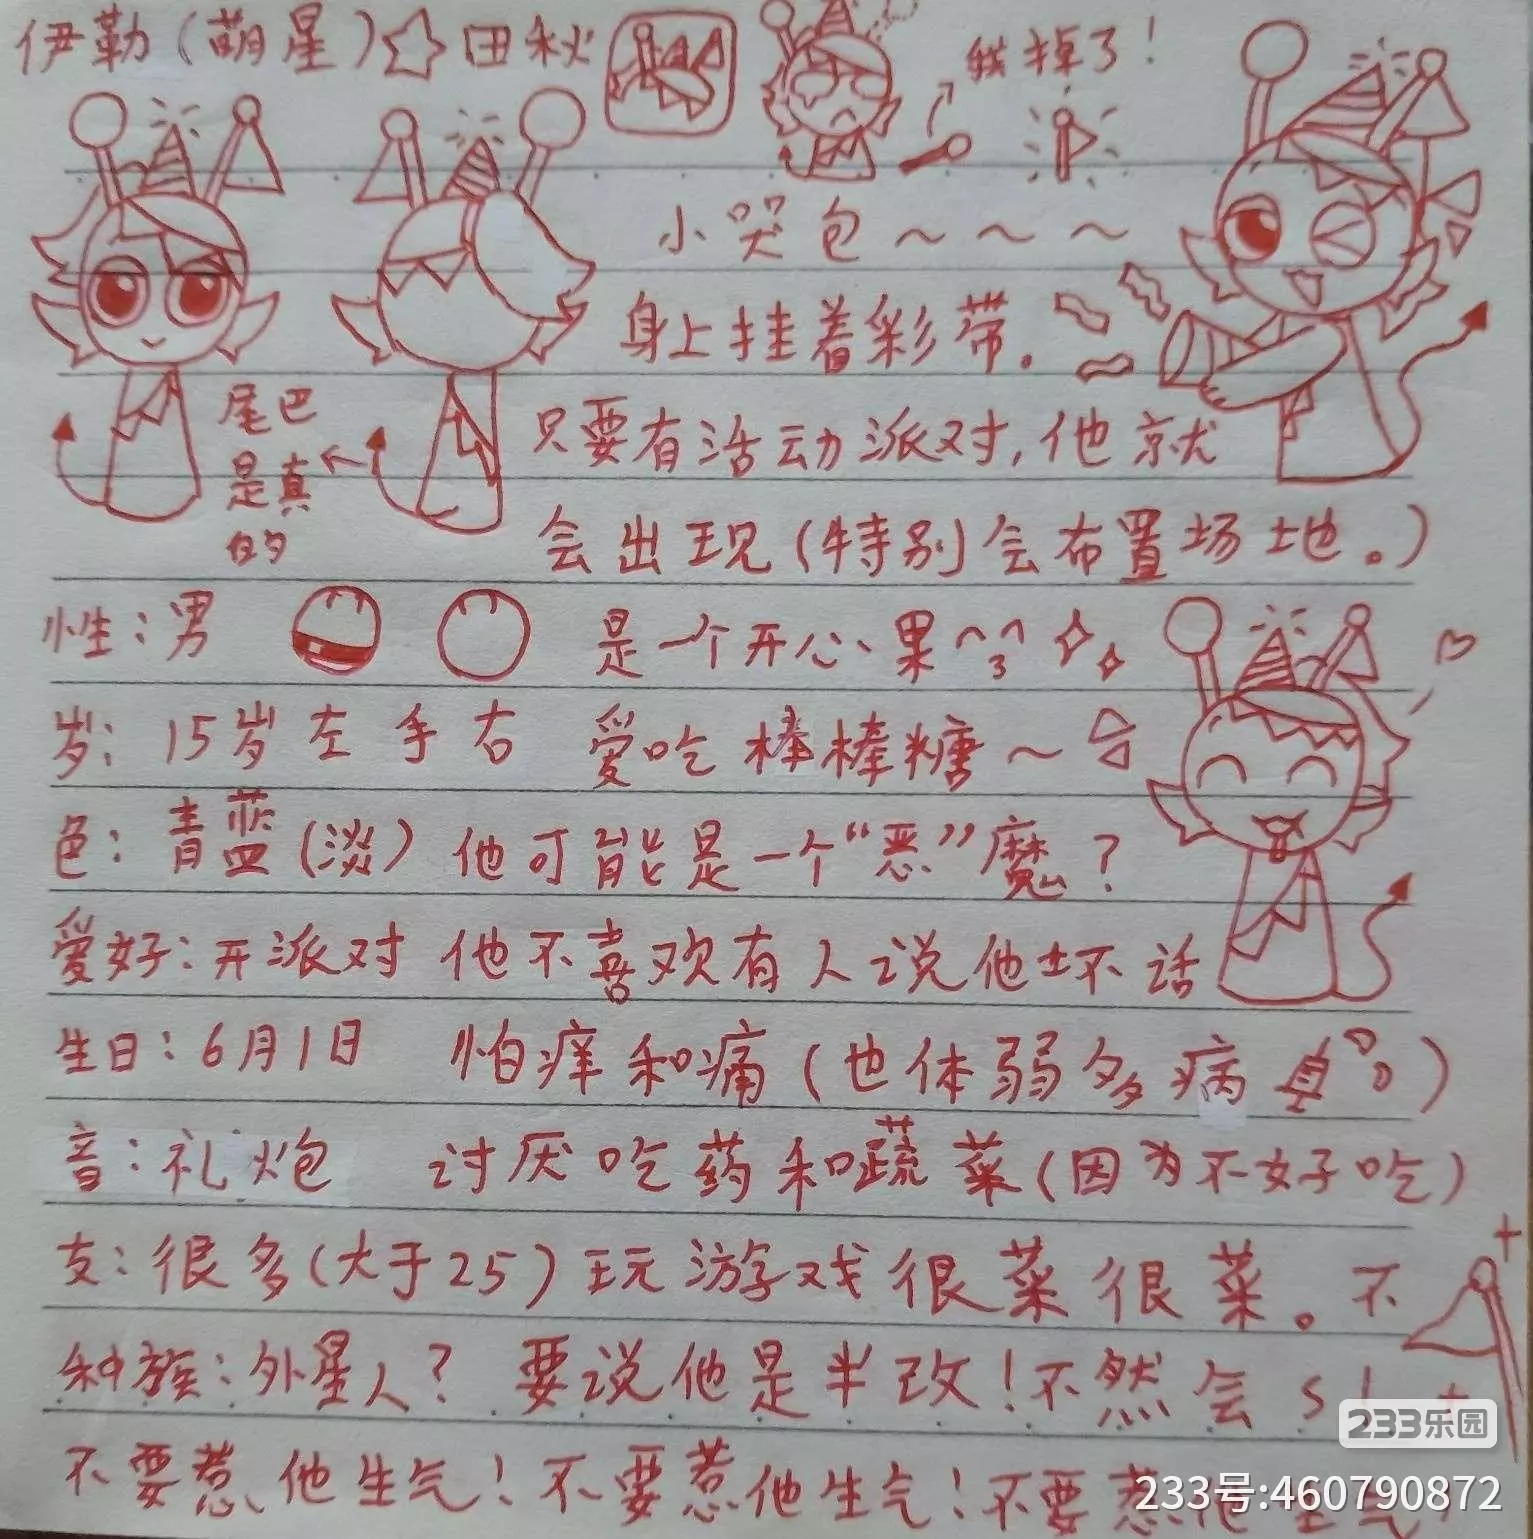 伊勒(萌星)☆田秋
我掉了!
小哭包～～～
身上挂着彩带。
尾巴是真的
只要有活动派对,他就
会出现(特别会布置场地。)
性:男
是一个开心果
岁:15岁 左手右
爱吃棒棒糖～
色:青蓝(淡)
他可能是一个“恶”魔?
爱好:开派对
他不喜欢有人说他坏话
生日:6月1日
怕痒和痛(也体弱多病)
音:礼炮
讨厌吃药和蔬菜(因为不好吃)
支:很多(大于25)
玩游戏很菜很菜。不
种族:外星人?
要说他是半改!不然会s!
不要惹他生气!不要惹他生气!不要惹他生气!
233乐园
233号:460790872